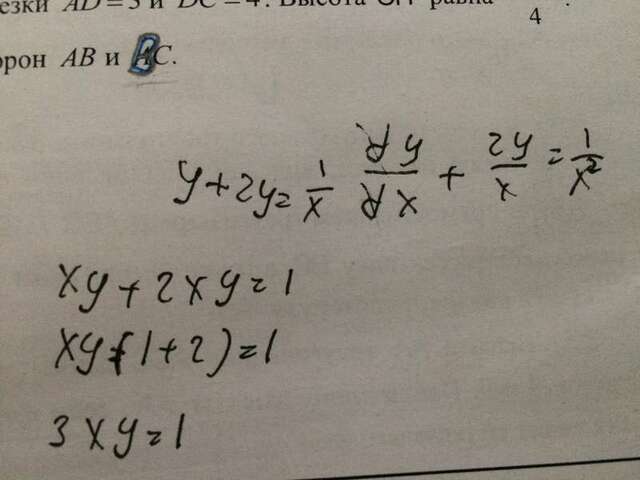 езки AD = 3 и DC = 4. Высота CH равна
орон AB и BC.
y+2y=1/x dy/dx + 2y/x = 1/x²
xy+2xy=1
xy(1+2)=1
3xy=1